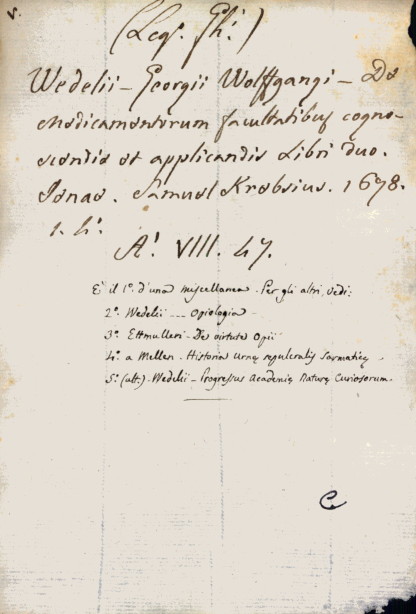 v.
(Leg.º Gh.i)
Wedelii – Georgii Wolffgangi – De
Medicamentorum facultatibus cogno-
scendis et applicandis Libri duo.
Ienae. Samuel Krebsius. 1678.
1. 4.º
A.I VIII. 47.
E' il 1.º d'una miscellanea. Per gli altri, vedi:
2.º Wedelii --- Opiologia -
3.º Ettmulleri - De virtute Opii
4.º a Mellen. Historia Urnę sepulcralis Sarmaticę.
5.º (ult.) - Wedelii - Progressus Academię Naturę Curiosorum.
C